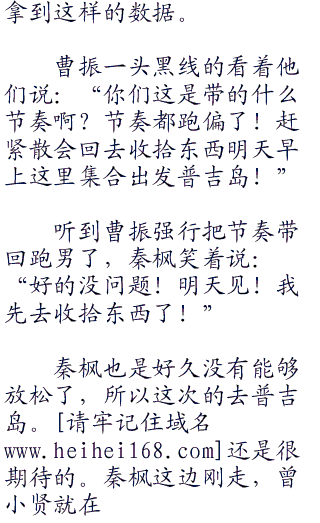 拿到这样的数据。
曹振一头黑线的看着他
们说：“你们这是带的什么
节奏啊？节奏都跑偏了！赶
紧散会回去收拾东西明天早
上这里集合出发普吉岛！”
听到曹振强行把节奏带
回跑男了，秦枫笑着说：
“好的没问题！明天见！我
先去收拾东西了！”
秦枫也是好久没有能够
放松了，所以这次的去普吉
岛。[请牢记住域名
www.heihei168.com]还是很
期待的。秦枫这边刚走，曾
小贤就在